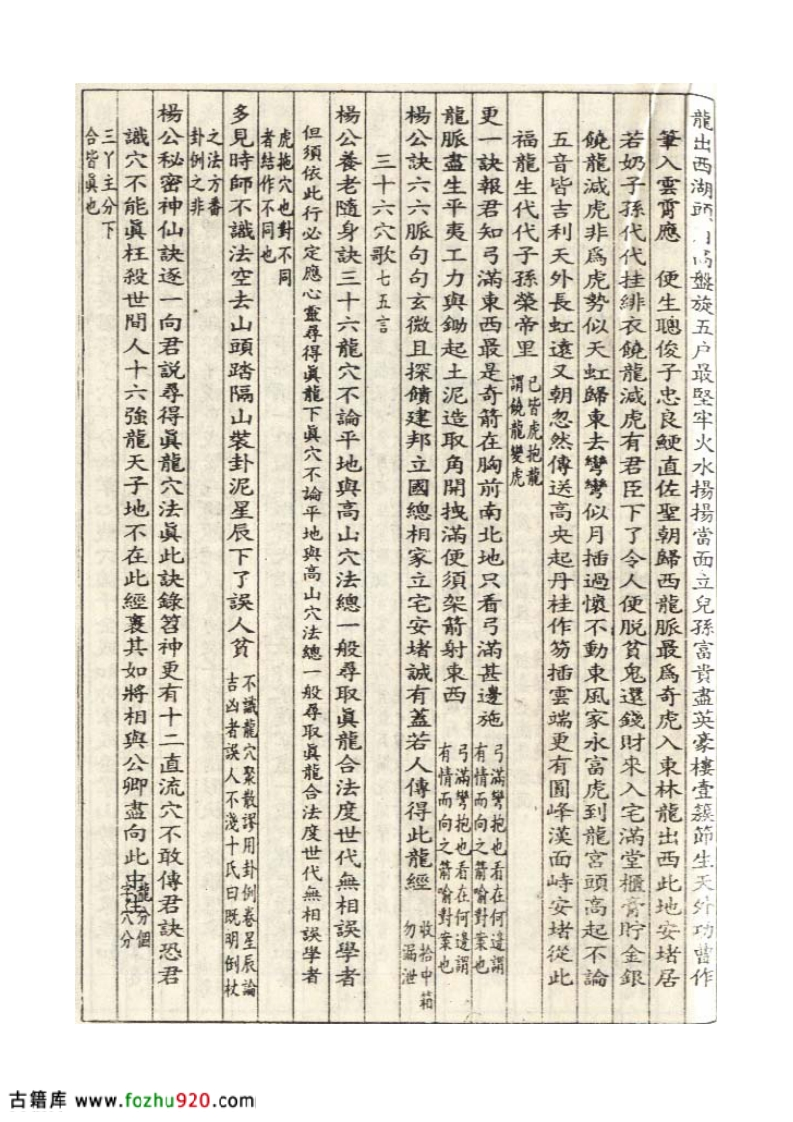 龍出西湖頭 高盤旋五户最堅牢火水揚揚當面立兒孫富貴盡英豪樓壹簇節生天外功曹作
筆入雲霄應　便生聰俊子忠良鯁直佐聖朝歸西龍脈最爲奇虎入東林龍出西此地安堵居
若奶子孫代代挂緋衣饒龍減虎有君臣下了令人便脱貧鬼還錢財來入宅滿堂櫃膏貯金銀
饒龍減虎非爲虎勢似天虹歸東去彎彎似月插過懷不動東風家永富虎到龍宮頭高起不論
五音皆吉利天外長虹遠又朝忽然傳送高央起丹桂作笏插雲端更有圓峰漢面峙安堵從此
福龍生代代子孫榮帝里 已皆虎抱龍謂饒龍變虎
更一訣報君知弓滿東西最是奇箭在胸前南北地只看弓滿甚邊施 弓滿彎抱也看在何邊謂有情而向之箭喻對案也
龍脈盡生平夷工力與鋤起土泥造取角開拽滿便須架箭射東西 弓滿彎抱也看在何邊謂有情而向之箭喻對案也
楊公訣六六脈句句玄微且探饋建邦立國總相家立宅安堵誠有蓋若人傳得此龍經 收拾巾箱勿漏泄
三十六穴歌 七五言
楊公養老隨身訣三十六龍穴不論平地與高山穴法總一般尋取眞龍合法度世代無相誤學者
但須依此行必定應心靈尋得眞龍下眞穴不論平地與高山穴法總一般尋取眞龍合法度世代無相誤學者
虎拖穴也對不同者結作不同也
多見時師不識法空去山頭踏隔山裝卦泥星辰下了誤人貧 不識龍穴聚散謬用卦例卷星辰論吉凶者誤人不淺十氏曰既明倒杖
之法方番卦例之非
楊公秘密神仙訣逐一向君説尋得眞龍穴法眞此訣錄笤神更有十二直流穴不敢傳君訣恐君
識穴不能眞枉殺世間人十六強龍天子地不在此經裏其如將相與公卿盡向此中生 龍分個字穴分
三丫主分下合皆眞也
古籍库 www.fozhu920.com